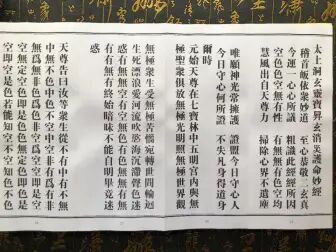 太上洞玄靈寶昇玄消災護命妙經
稽首皈依衆妙道　至心恭敬二玄真
今運一心心所議　粗識此經經所因
色色空空無有性　有有無無色空均
慧風出自天尊力　掃除心界不遺塵
唯願神光常擁護　證盟今日守心人
今日守心何所證　不失凡身得道身
爾時
元始天尊在七寶林中五明宮內與無
極聖衆俱放無極光明照無極世界觀
無極衆生受無極苦惱宛轉世間輪迴
生死漂浪愛河流吹慾海沉滯聲色迷
惑有無無空有空無色有色無無有無
有有無有終始暗昧不能自明畢竟迷
惑
天尊告曰汝等衆生從不有中有不無
中無不色中色不空中空非有爲有非
無爲無非色爲色非空爲空空即是空
空無定空色即是色色無定色即色是
空即空是色若能知空不空知色不色